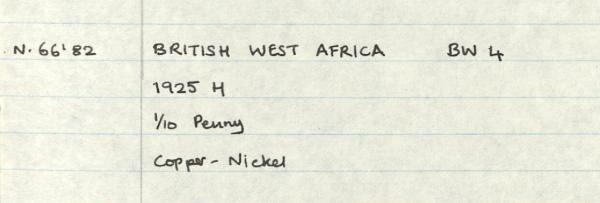 N. 66'82 BRITISH WEST AFRICA BW 4
1925 H
1/10 Penny
Copper-Nickel